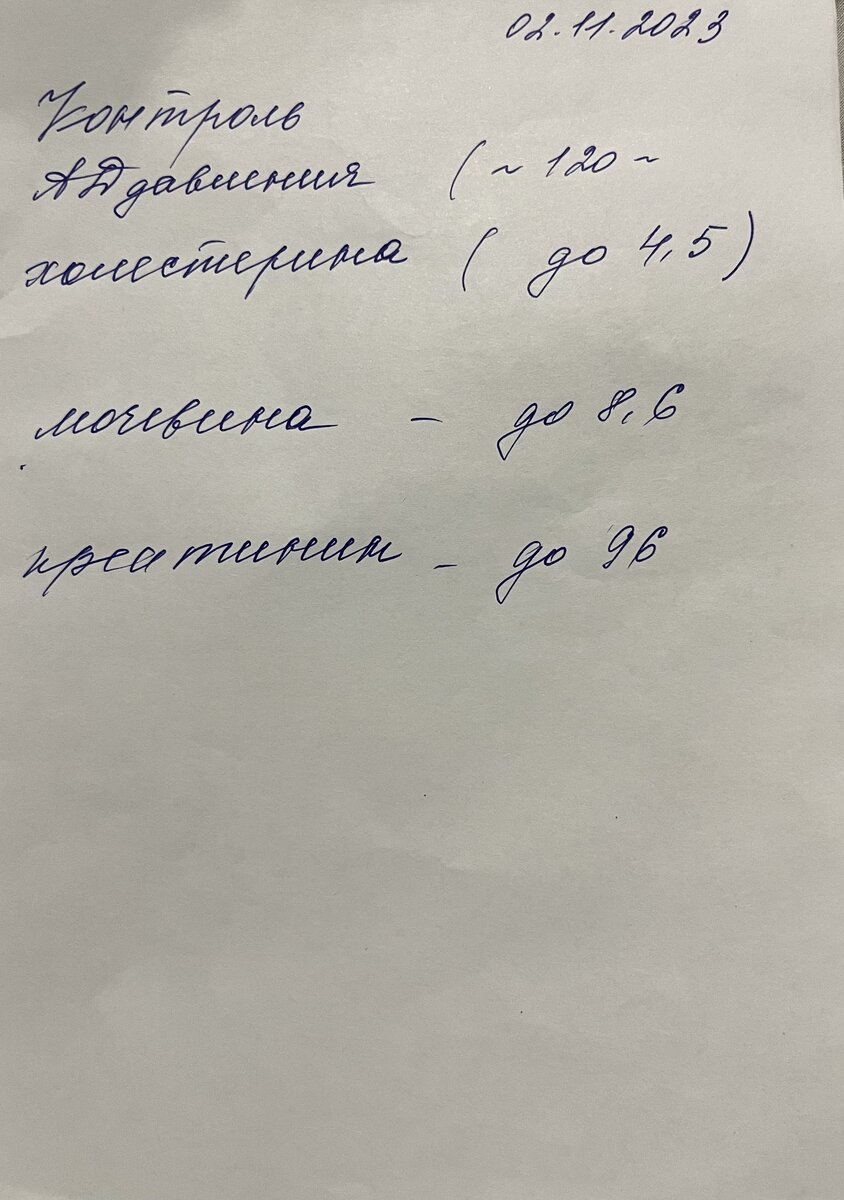 02.11.2023
Контроль
АД давления ( ~ 120 ~
холестерина ( до 4,5 )
мочевина - до 8,6
креатинин - до 96